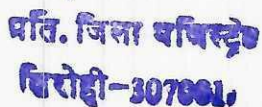 प्रति. जिला मजिस्ट्रेट
सिरोही-307001.